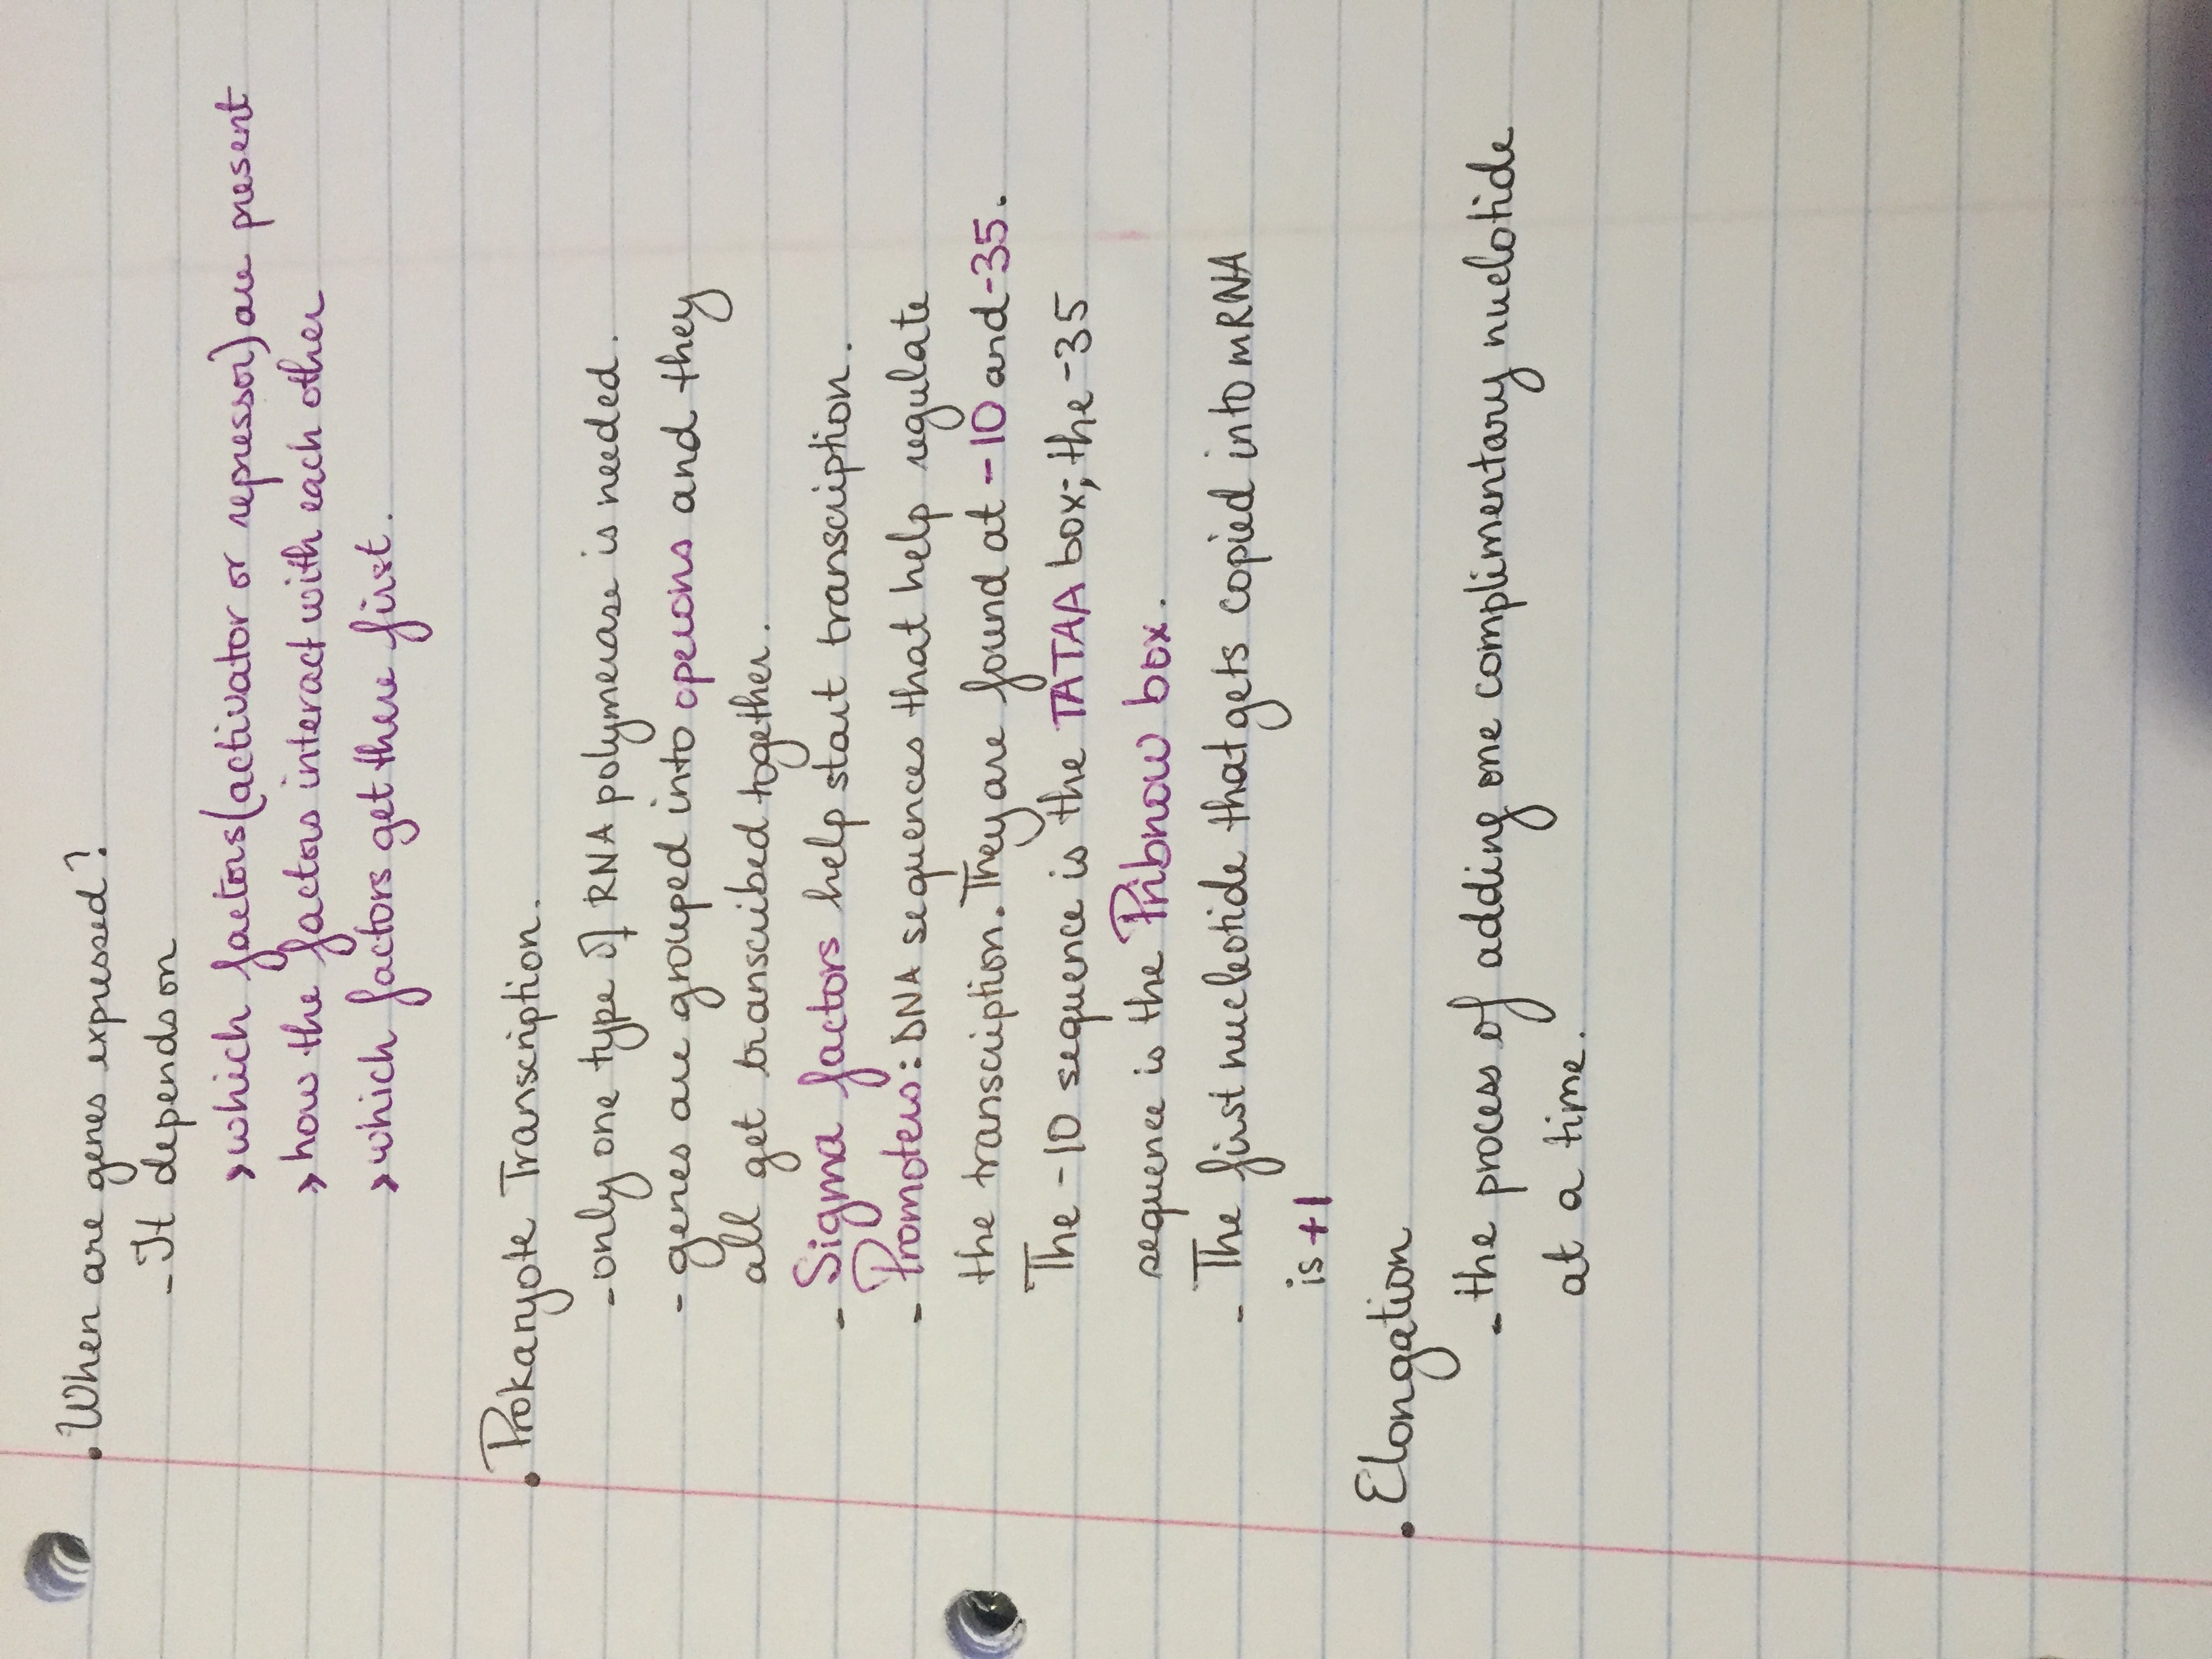 • When are genes expressed?
- It depends on
> which factors (activator or repressor) are present
> how the factors interact with each other
> which factors get there first.
• Prokaryote Transcription.
- only one type of RNA polymerase is needed.
- genes are grouped into operons and they
all get transcribed together.
- Sigma factors help start transcription.
- Promoters: DNA sequences that help regulate
the transcription. They are found at -10 and -35.
The -10 sequence is the TATAA box; the -35
sequence is the Pribnow box.
- The first nucleotide that gets copied into mRNA
is +1
• Elongation
- the process of adding one complimentary nuclotide
at a time.